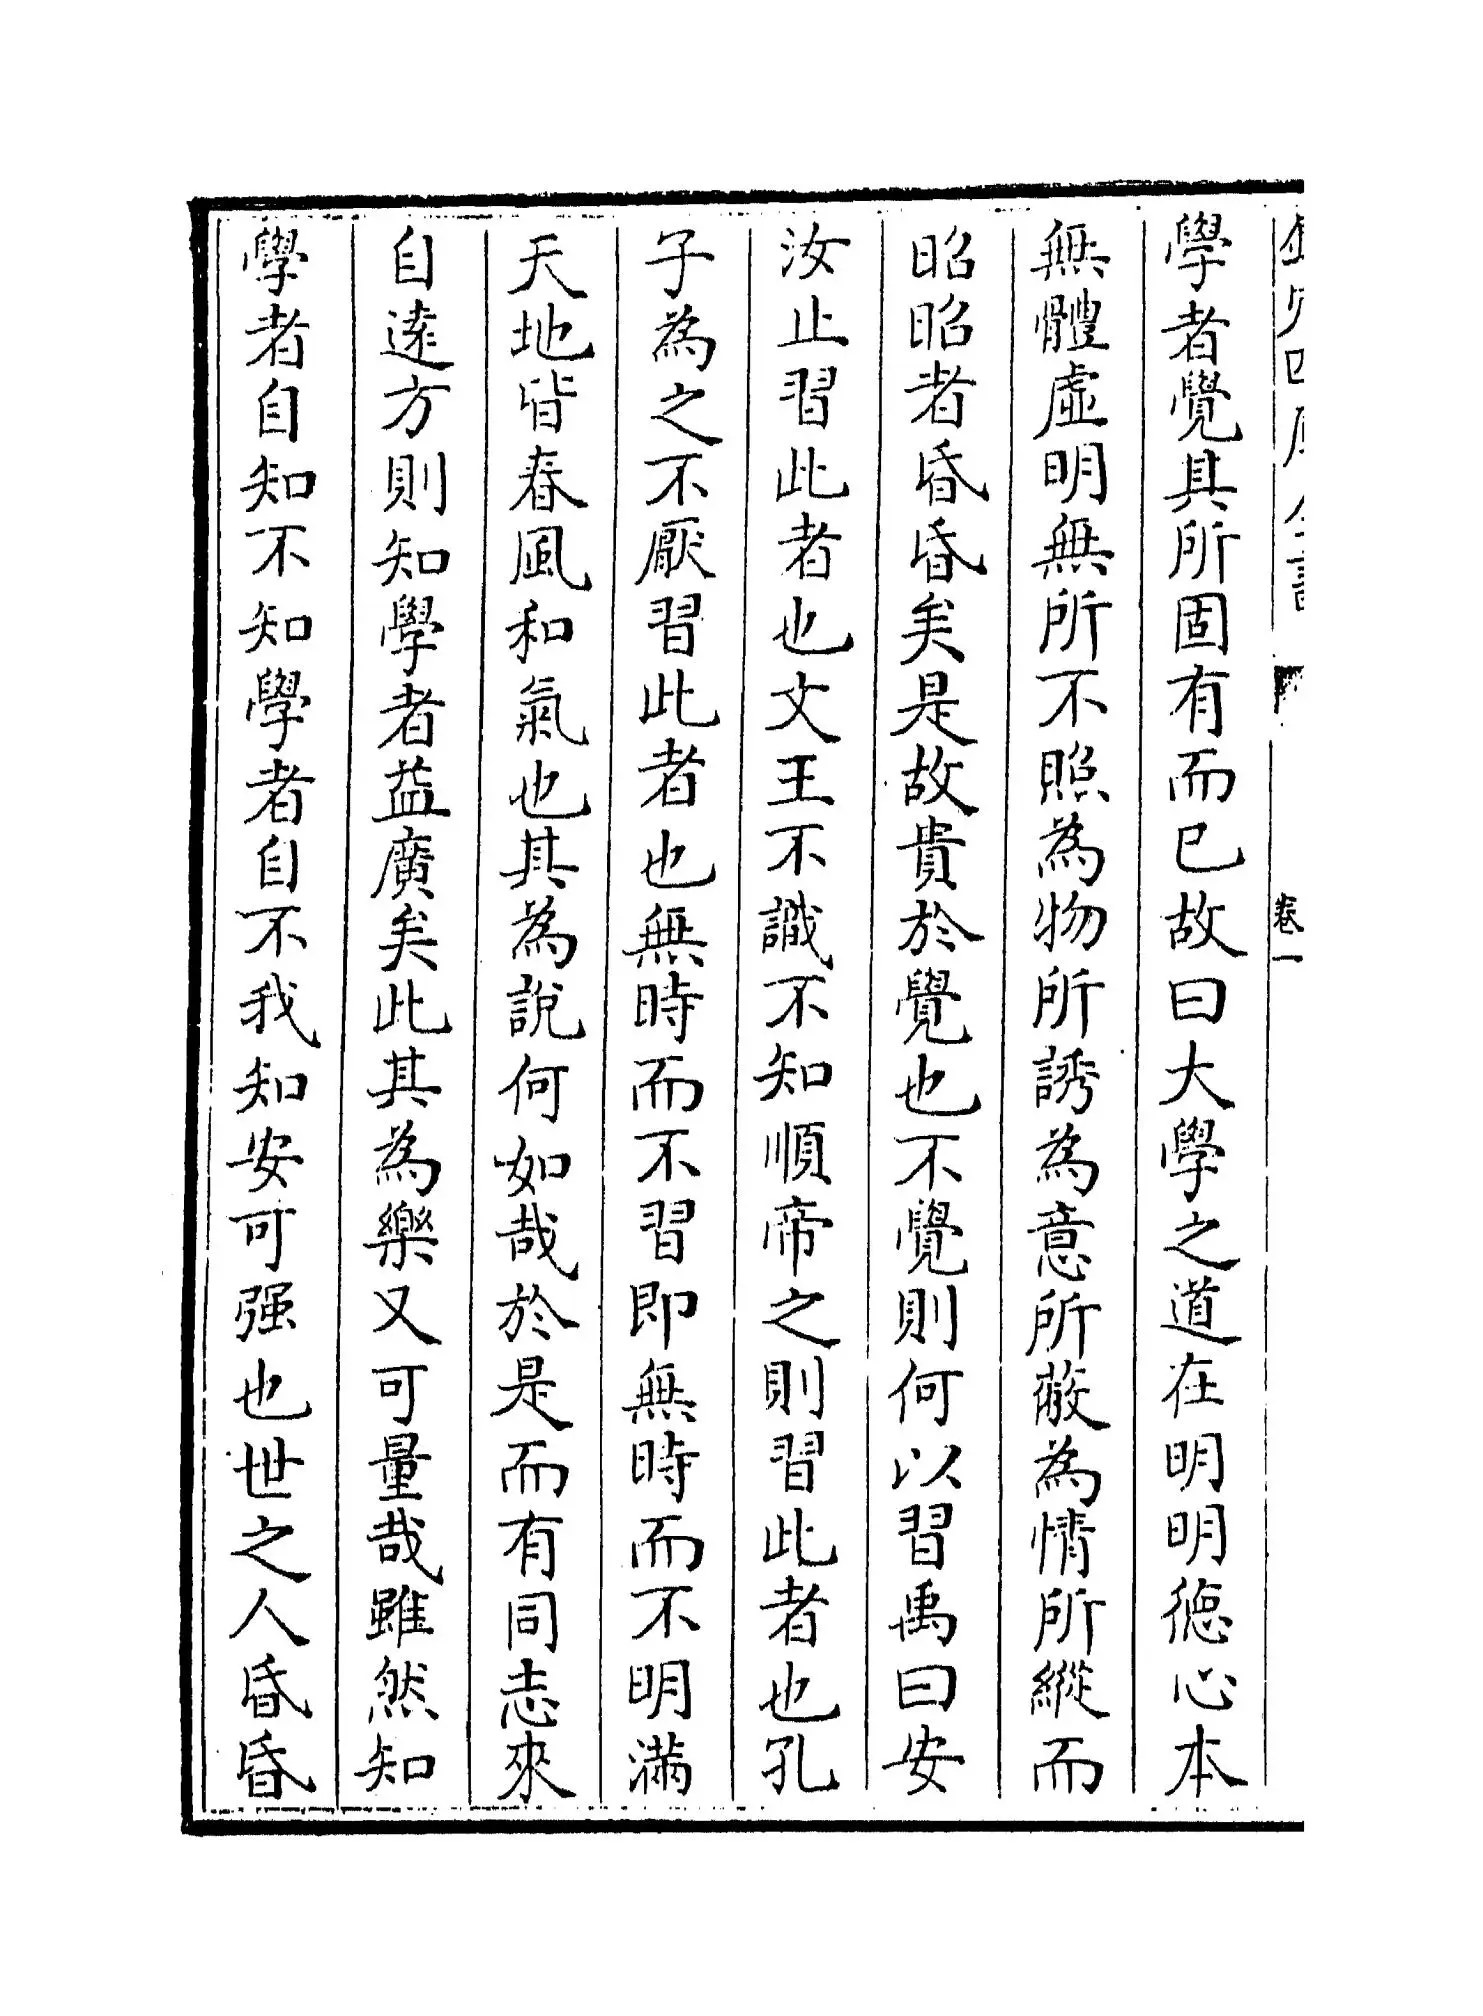 學者覺其所固有而已故曰大學之道在明明徳心本
無體虛明無所不照為物所誘為意所蔽為情所縱而
昭昭者昏昏矣是故貴於覺也不覺則何以習禹曰安
汝止習此者也文王不識不知順帝之則習此者也孔
子為之不厭習此者也無時而不習即無時而不明滿
天地皆春風和氣也其為說何如哉於是而有同志來
自逺方則知學者益廣矣此其為樂又可量哉雖然知
學者自知不知學者自不我知安可强也世之人昏昏
卷一